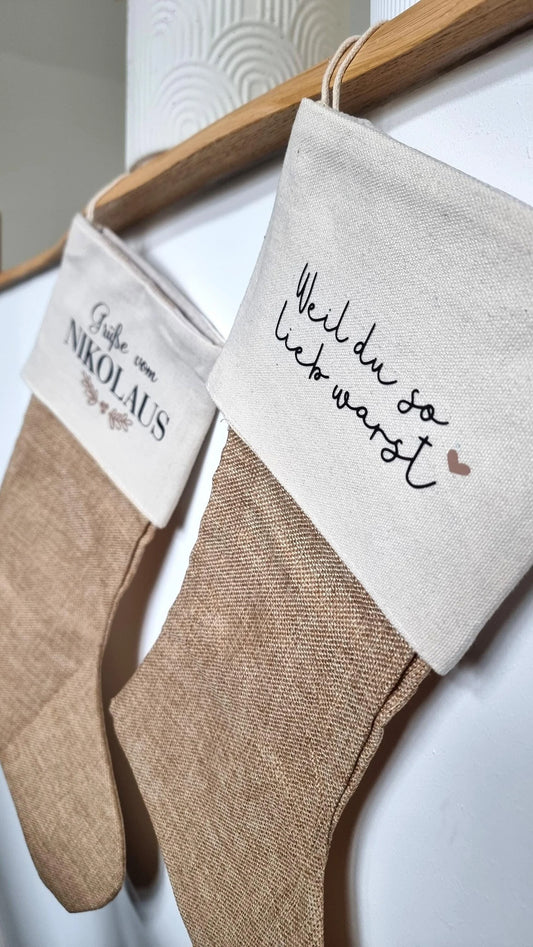 Grüße vom
NIKOLAUS
Weil du so
lieb warst